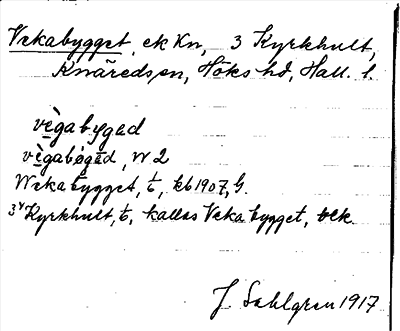 Vekabygget, ek Kn, 3 Kyrkhult,
Knäredsen, Höks hd, Hall. l.
vègabyged
vègabøged, W 2
Wekabygget, t, kb 1907, G.
3 Kyrkhult, t, kallas Vekabygget, blk.
J. Sahlgren 1917